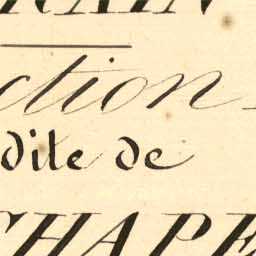 RAIN
ction
dite de
CHAPE